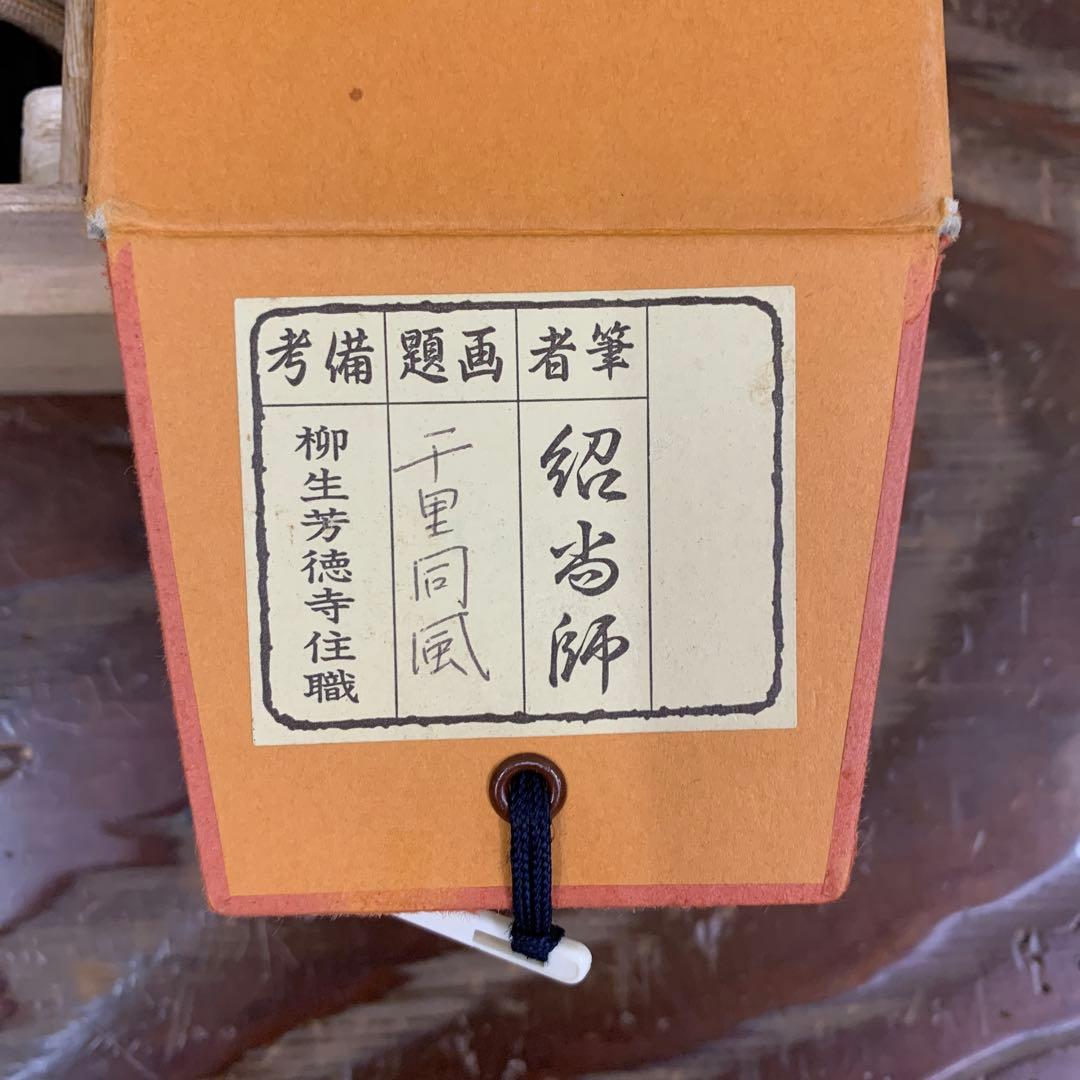 筆者
紹尚師
画題
千里同風
備考
柳生芳徳寺住職